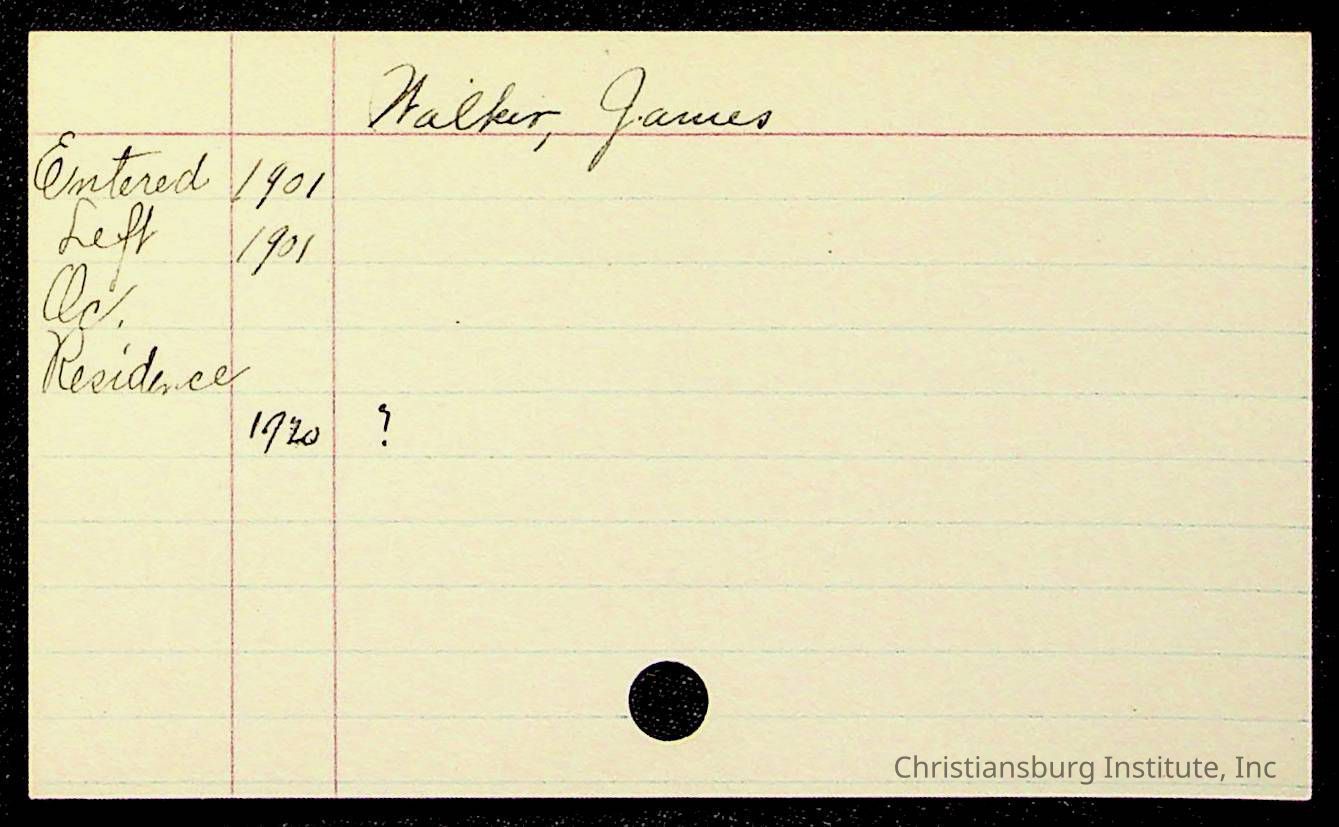 Walker, James
Entered 1901
Left 1901
Oc.
Residence
1920 ?
Christiansburg Institute, Inc